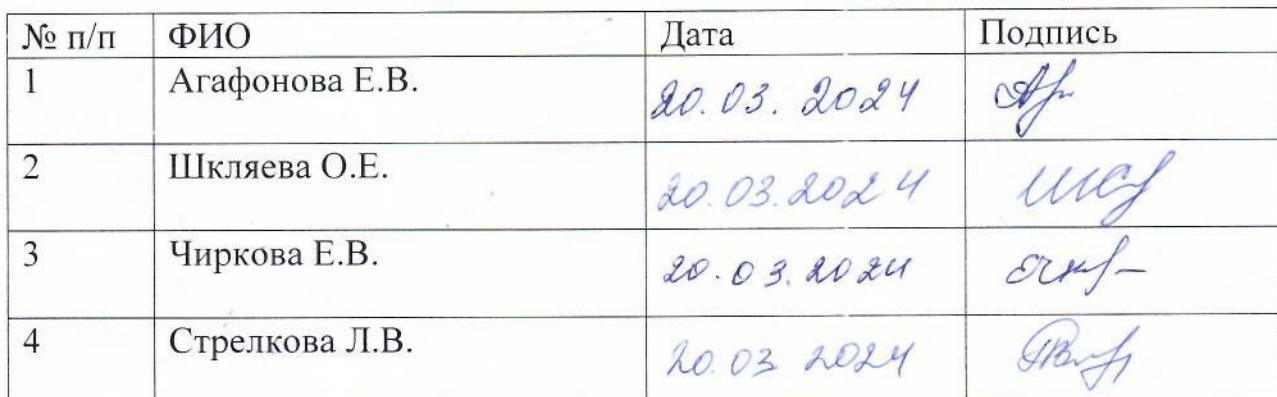 № п/п ФИО Дата Подпись
1 Агафонова Е.В. 20.03.2024
2 Шкляева О.Е. 20.03.2024
3 Чиркова Е.В. 20.03.2024
4 Стрелкова Л.В. 20.03 2024